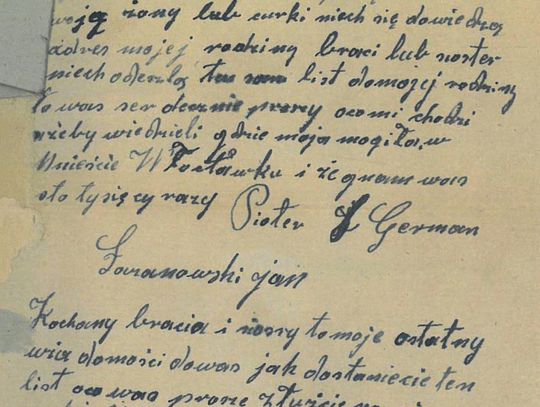 żony lub curki niech się dowiedzą
adres mojej rodziny braci lub soster
niech odeszlą ten sam list domojej rodziny
to was ser decznie proszy ocomi chodzi
ażeby wiedzieli gdzie moja mogiła w
Mnieście W Tosławku i żegnam was
sto tysięcy razy Pioter German
Łazanowski jan
Kochany bracia i siosry tomoje ostatny
wia domości dowas jak dostaniecie ten
list oco was prosze